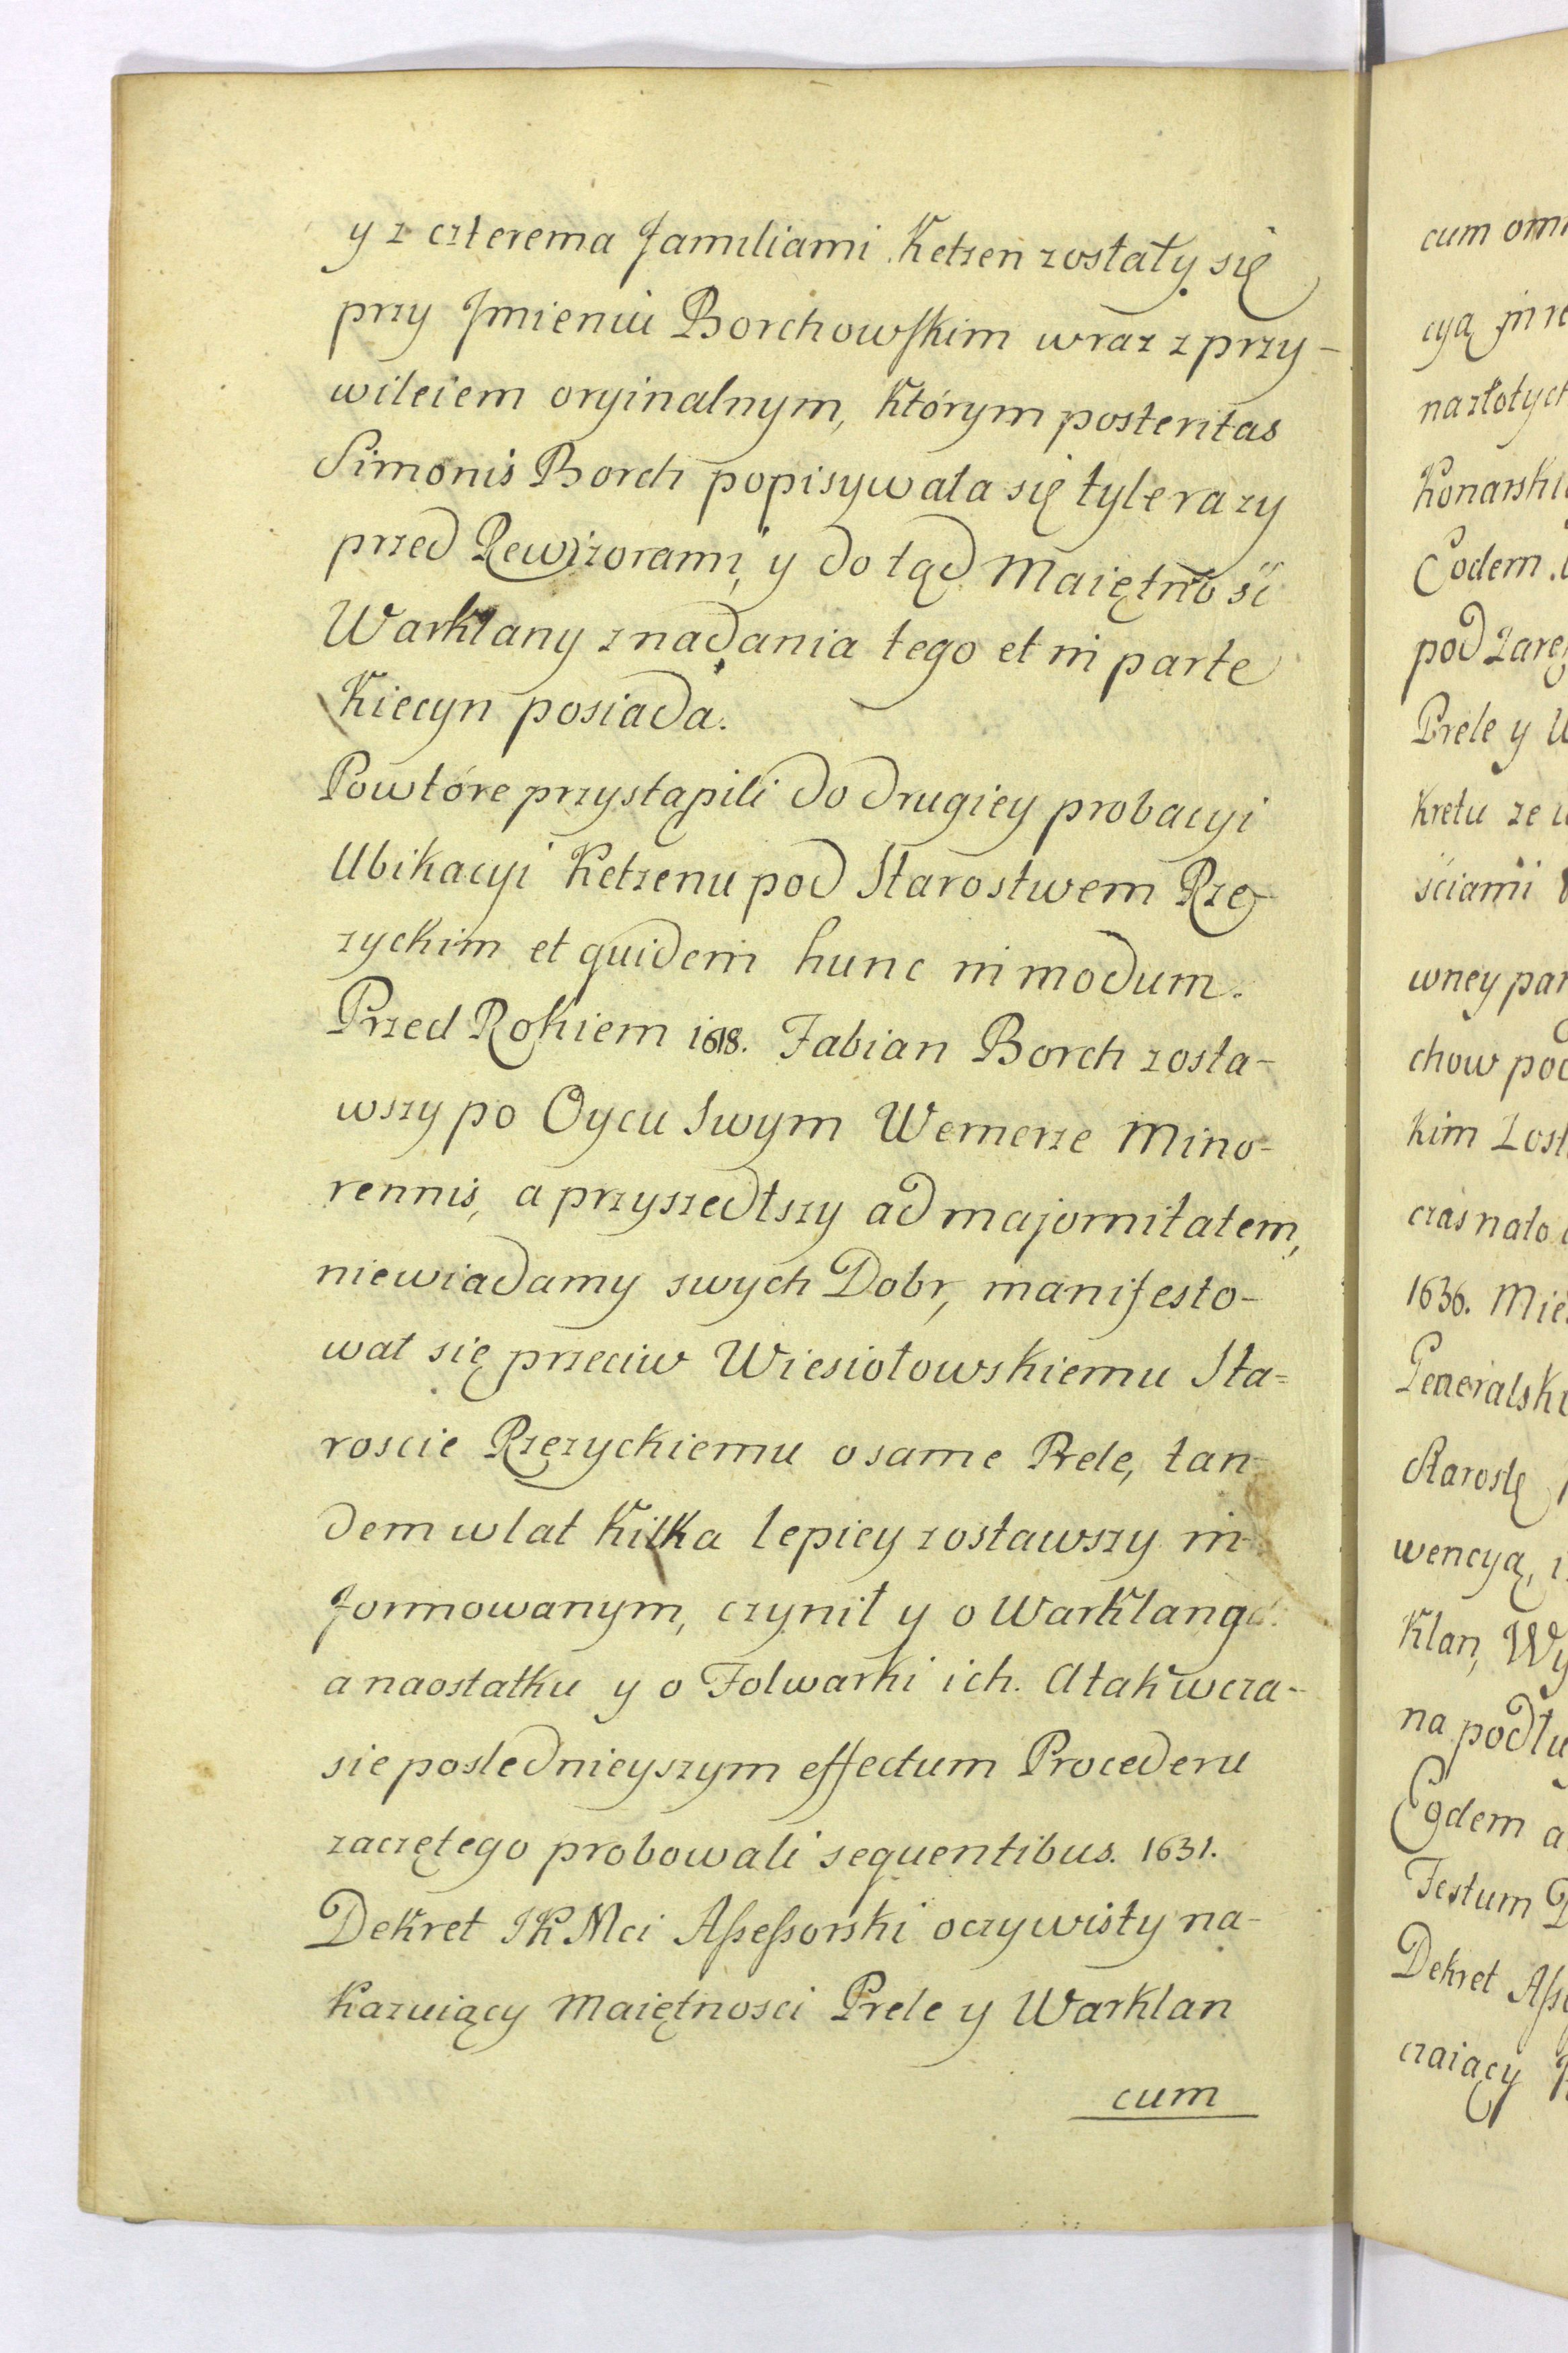 y z czterema familiami Ketzen zostały się
przy Jmieniu Borchowskim wraz z przy-
wileiem oryinalnym, którym posteritas
Simonis Borch popisywała się tyle razy
przed Rewizorami, y do tąd Maiętność
Warklany z nadania tego et in parte
Kiecyn posiada.
Powtóre przystąpili do drugiey probacyi
Ubikacyi Ketzenu pod Starostwem Rze-
zyckim et quidem hunc in modum.
Przed Rokiem 1618. Fabian Borch zosta-
wszy po Oycu swym Wernerze Mino-
rennis, a przyszedłszy ad majornitatem,
niewiadamy swych Dobr, manifesto-
wał się przeciw Wiesiołowskiemu Sta=
roscie Rzęzyckiemu o same Prele, tan-
dem w lat kilka lepiey zostawszy in-
formowanym, czynił y o Warklang
a naostatku y o Folwarki ich. A tak w cza-
sie poslednieyszym effectum Procederu
zaczętego probowali sequentibus. 1631.
Dekret JKMci Assessorski oczywisty na-
kazuiący Maiętnosci Prele y Warklan
cum
cum
cyą
na złotych
Konarski
Eodem
pod
Prele y
kretu ze
ściami
wney
chow
kim
czas nato
1636.
Generalsk
Starostę
wencyą,
klan,
na podłu
Eodem
Festum
Dekret
czaiący